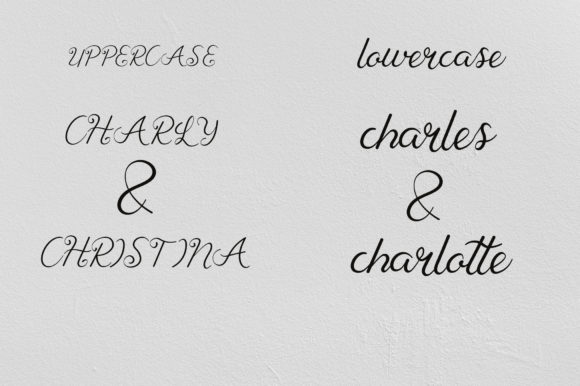 UPPERCASE
CHARLY
&
CHRISTINA
lowercase
charles
&
charlotte